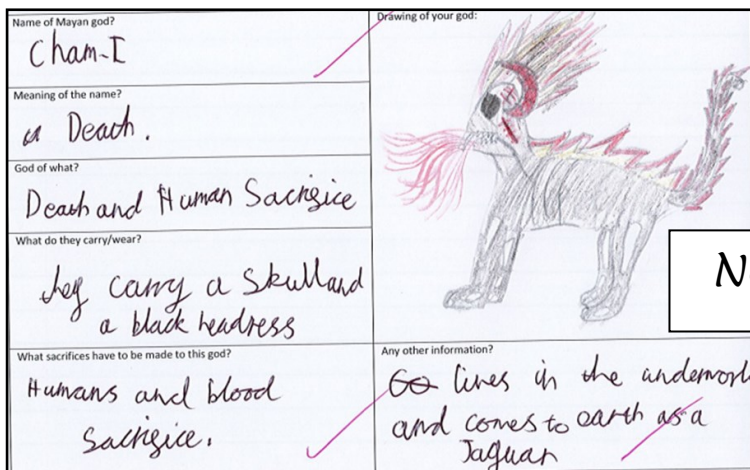 Name of Mayan god?
Cham-I
Meaning of the name?
Death.
God of what?
Death and Human Sacrisice
What do they carry/wear?
they carry a Skull and
a black headress
What sacrifices have to be made to this god?
Humans and blood
Sacrisice.
Drawing of your god:
N
Any other information?
lives in the underworl
and comes to earth as a
Jaguar